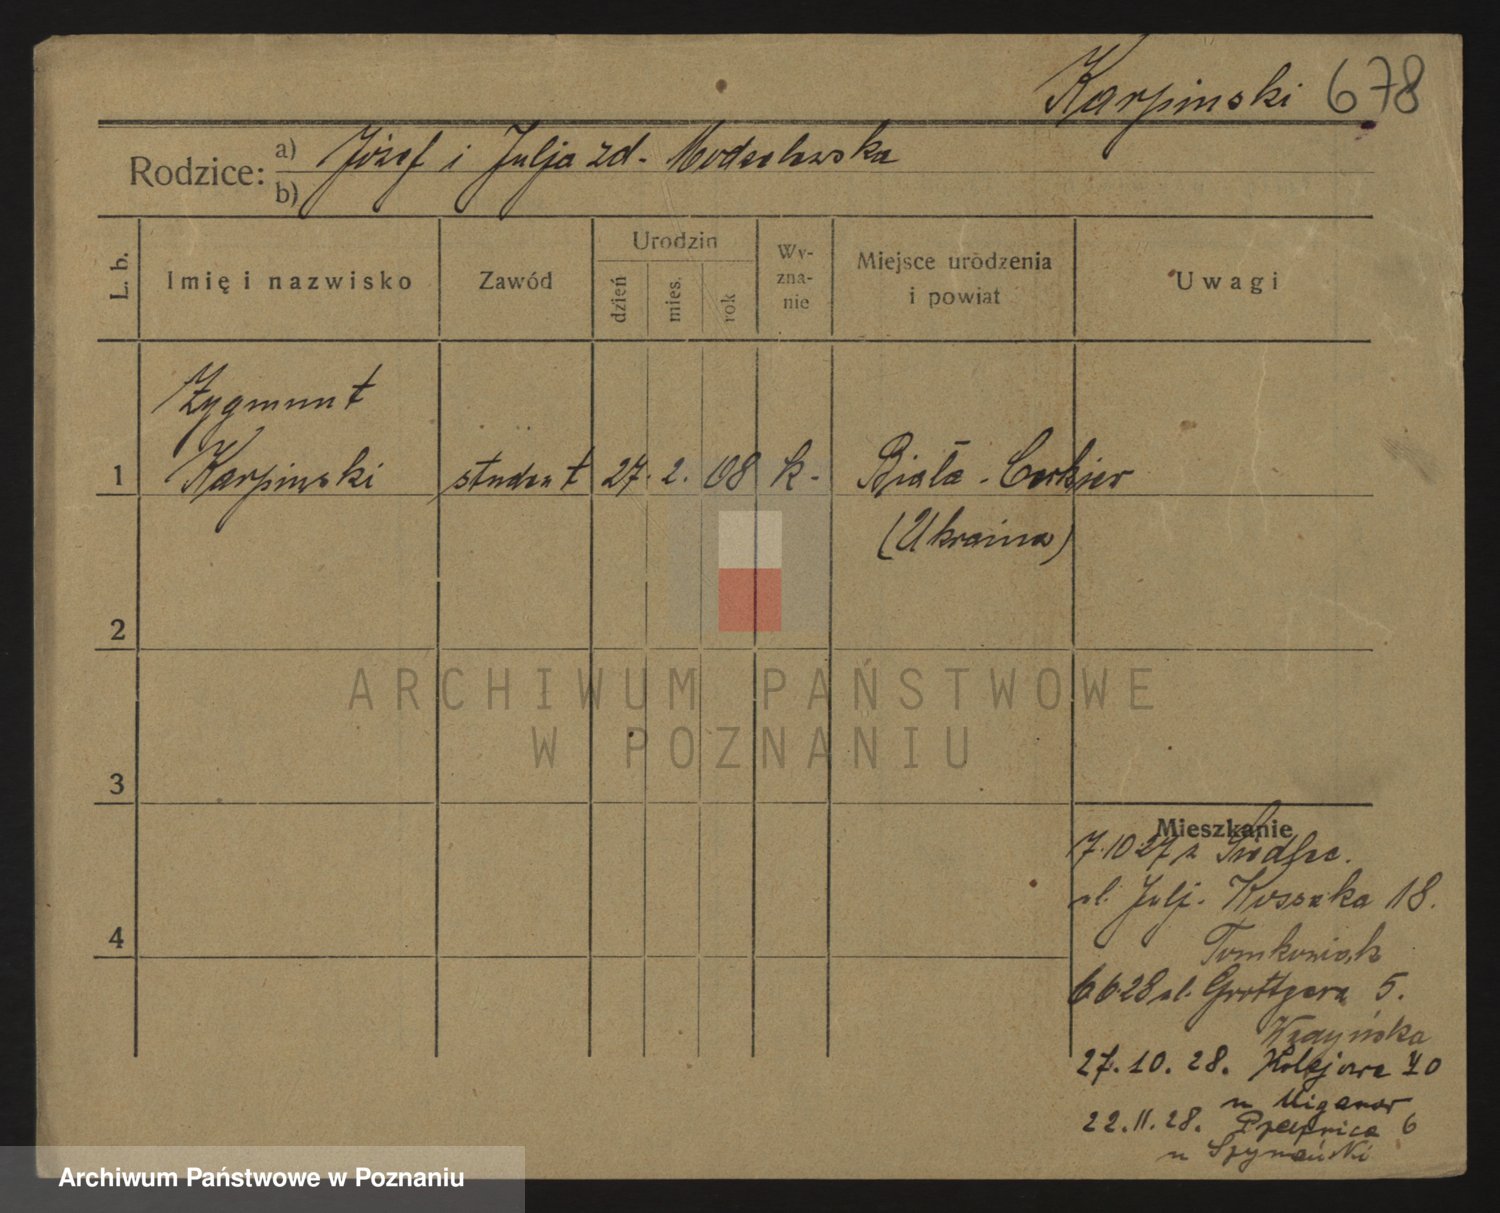 Karpinski 678
Rodzice: a) Józef i Julja zd.
b)
L. b.
Imię i nazwisko
Zawód
Urodzin
dzień
mies.
rok
Wy-
zna-
nie
Miejsce urodzenia
i powiat
Uwagi
Zygmunt
1 Karpinski student 27. 2. 08 k. Biała - Cerkiew
(Ukraina)
2
ARCHIWUM PAŃSTWOWE
W POZNANIU
3
Mieszkanie
7.10 27 z
ul. Julj. Kossaka 18.
4
Tomkowiak
6 6 28 ul. Grottgera 5.
27. 10. 28. Kolejowa
22. 11. 28. 6
u Szymański
Archiwum Państwowe w Poznaniu